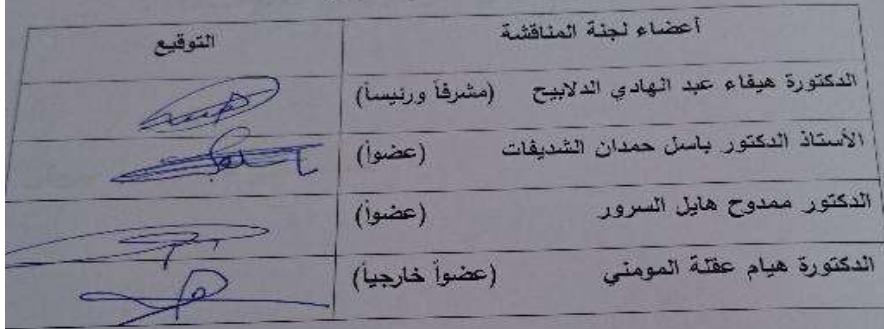 أعضاء لجنة المناقشة التوقيع
الدكتورة هيفاء عبد الهادي الدلابيح (مشرفاً ورئيساً)
الأستاذ الدكتور باسل حمدان الشديفات (عضواً)
الدكتور ممدوح هايل السرور (عضواً)
الدكتورة هيام عقلة المومني (عضواً خارجياً)